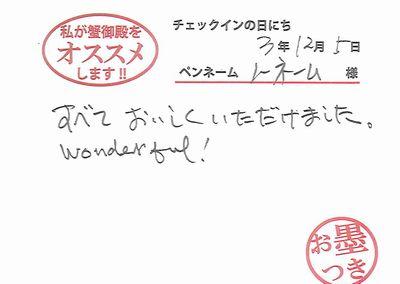 私が蟹御殿を
オススメ
します!!
チェックインの日にち
3年12月5日
ペンネーム トーネーム 様
すべておいしくいただけました。
wonderful!
お墨
つき